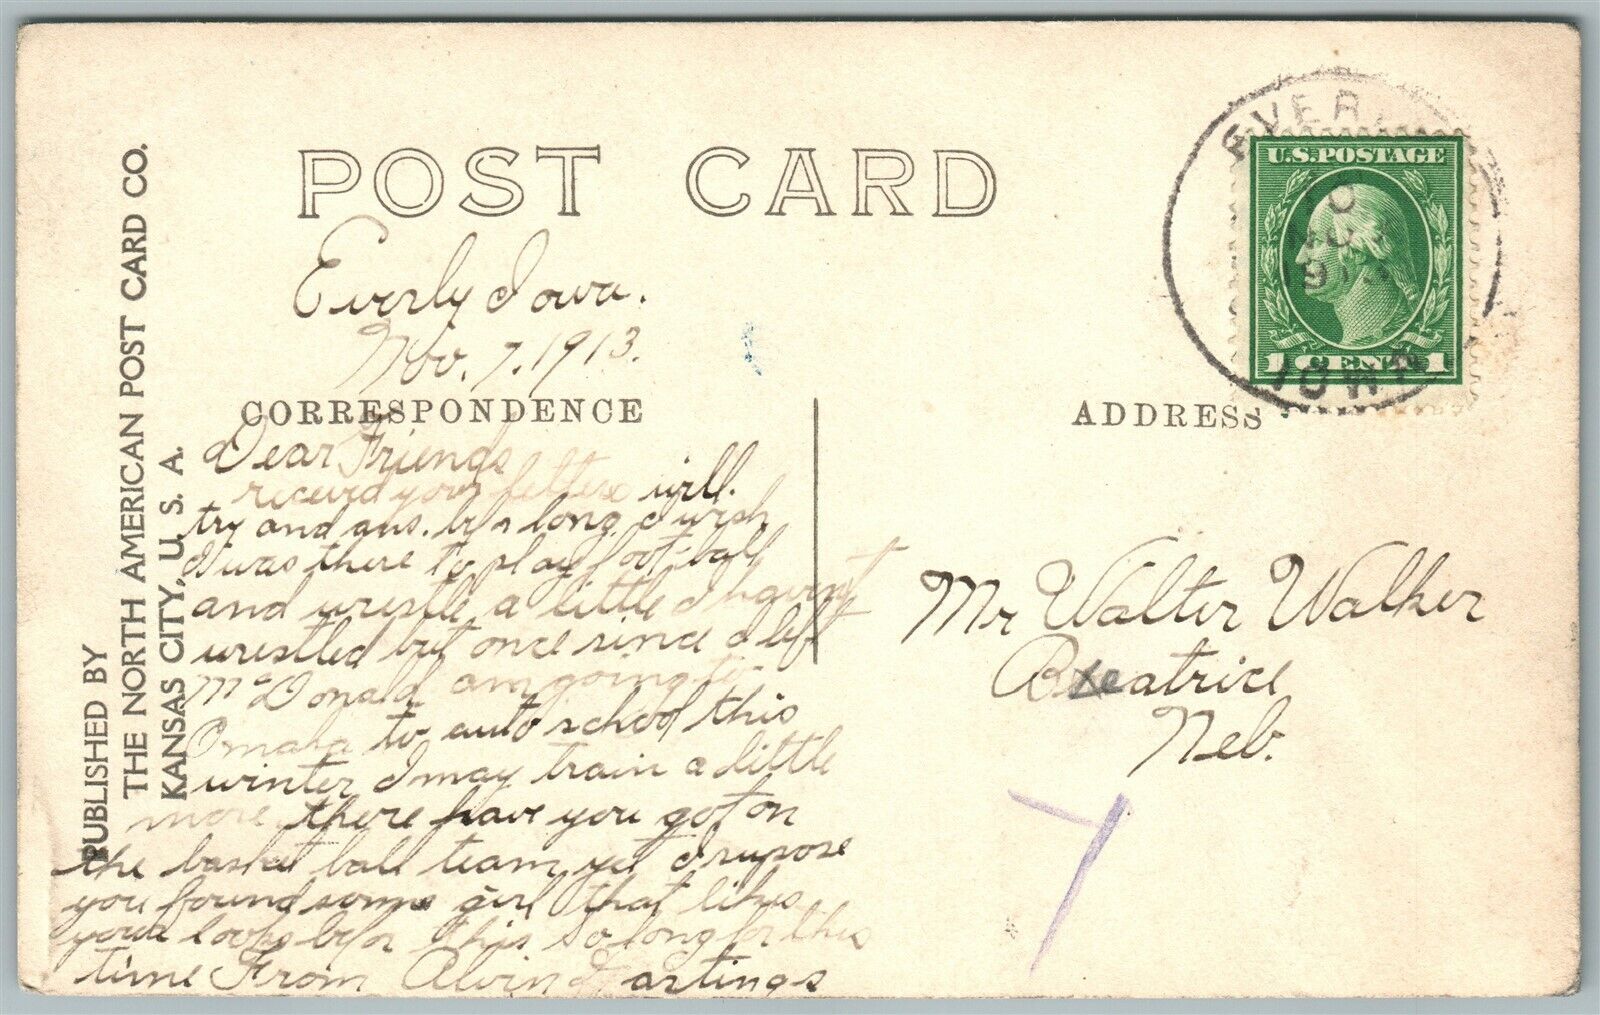 PUBLISHED BY
THE NORTH AMERICAN POST CARD CO.
KANSAS CITY, U. S. A.
POST CARD
Everly Iowa.
Nov. 7. 1913.
CORRESPONDENCE
Dear Friends
received your letters will
try and ans. by n long. I wish
I was there to play foot-ball
and wrestle a little I havent
wrestled but once since I left
McDonald am going to
Omaha to auto school this
winter I may train a little
more there have you got on
the basket ball team yet I supose
you found some girl that likes
your looks befor this so long for this
time From Alvin Hartings
ADDRESS
Mr Walter Walker
Beatrice
Neb.
EVER
IOWA
NOV
1913
U.S. POSTAGE
1 CENT 1